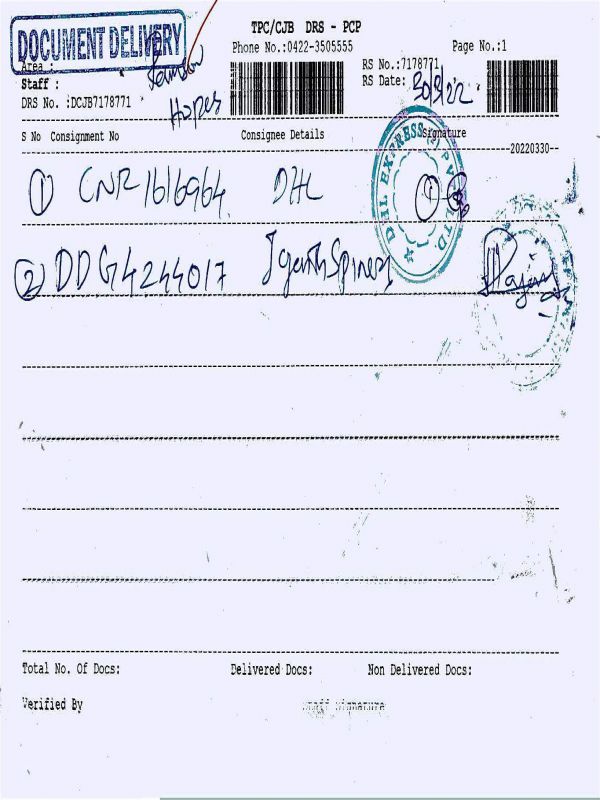 TPC/CJB DRS - PCP
DOCUMENT DELIVERY
Phone No.:0422-3505555 Page No.:1
Area : RS No.:7178771
Staff : RS Date: 30/3/22
DRS No. :DCJB7178771 Hopes
S No Consignment No Consignee Details Signature
--20220330--
DHL EXPRESS (I) PVT. LTD.
① CNR1616964 DHL
② DDG4244017
Total No. Of Docs: Delivered Docs: Non Delivered Docs:
Verified By Staff Signature